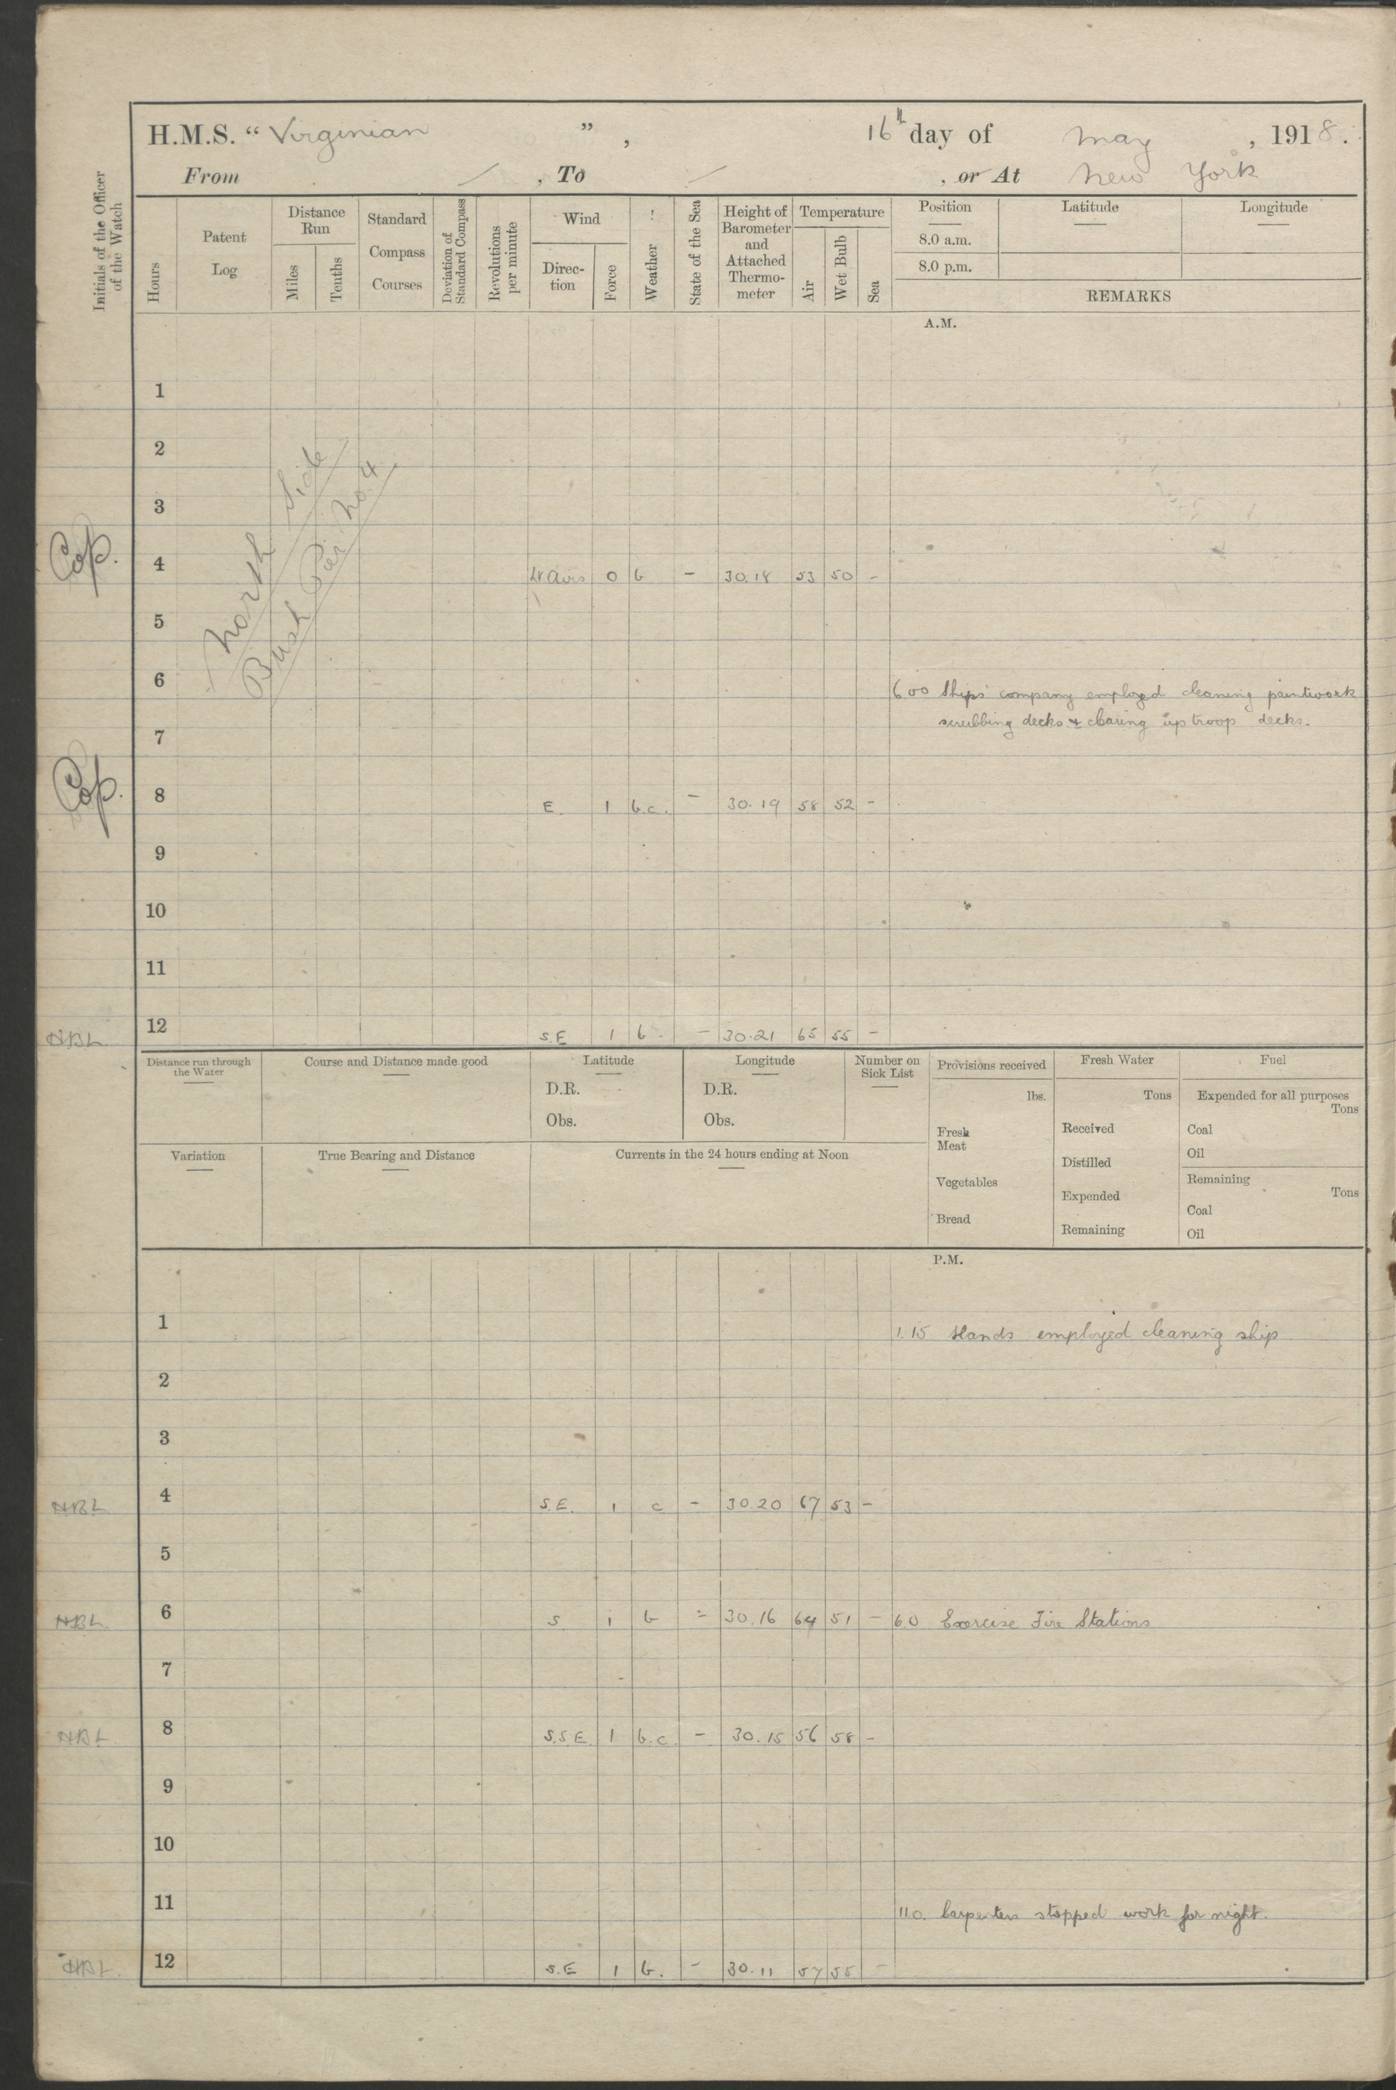 H.M.S. “Virginian ” , 16th day of May , 1918.
From , To , or At New York
Initials of the Officer of the Watch
Hours
Patent Log
Distance Run
Miles
Tenths
Standard Compass Courses
Deviation of Standard Compass
Revolutions per minute
Wind
Direc-tion
Force
Weather
State of the Sea
Height of Barometer and Attached Thermo-meter
Temperature
Air
Wet Bulb
Sea
Position Latitude Longitude
8.0 a.m.
8.0 p.m.
REMARKS
A.M.
1
2
3
North Side
Bush Pier No. 4
4 Lt Airs 0 b - 30.18 53 50 -
5
6 6 00 Ships' company employed cleaning paintwork
scrubbing decks & clearing up troop decks.
7
8 E. 1 b.c. - 30.19 58 52 -
9
10
11
HBL 12 S.E 1 b. - 30.21 65 55 -
Distance run through the Water
Course and Distance made good
Latitude
D.R.
Obs.
Longitude
D.R.
Obs.
Number on Sick List
Provisions received
lbs.
Fresh Meat
Vegetables
Bread
Fresh Water
Tons
Received
Distilled
Expended
Remaining
Fuel
Expended for all purposes
Tons
Coal
Oil
Remaining
Tons
Coal
Oil
Variation
True Bearing and Distance
Currents in the 24 hours ending at Noon
P.M.
1 1.15 Hands employed cleaning ship
2
3
HBL 4 S.E. 1 c - 30.20 67 53 -
5
HBL 6 S 1 b - 30.16 64 51 - 6.0 Exercise Fire Stations
7
HBL 8 S.S.E 1 b.c - 30.15 56 58 -
9
10
11 11.0. Carpenters stopped work for night.
HBL 12 S.E 1 b. - 30.11 57 55 -